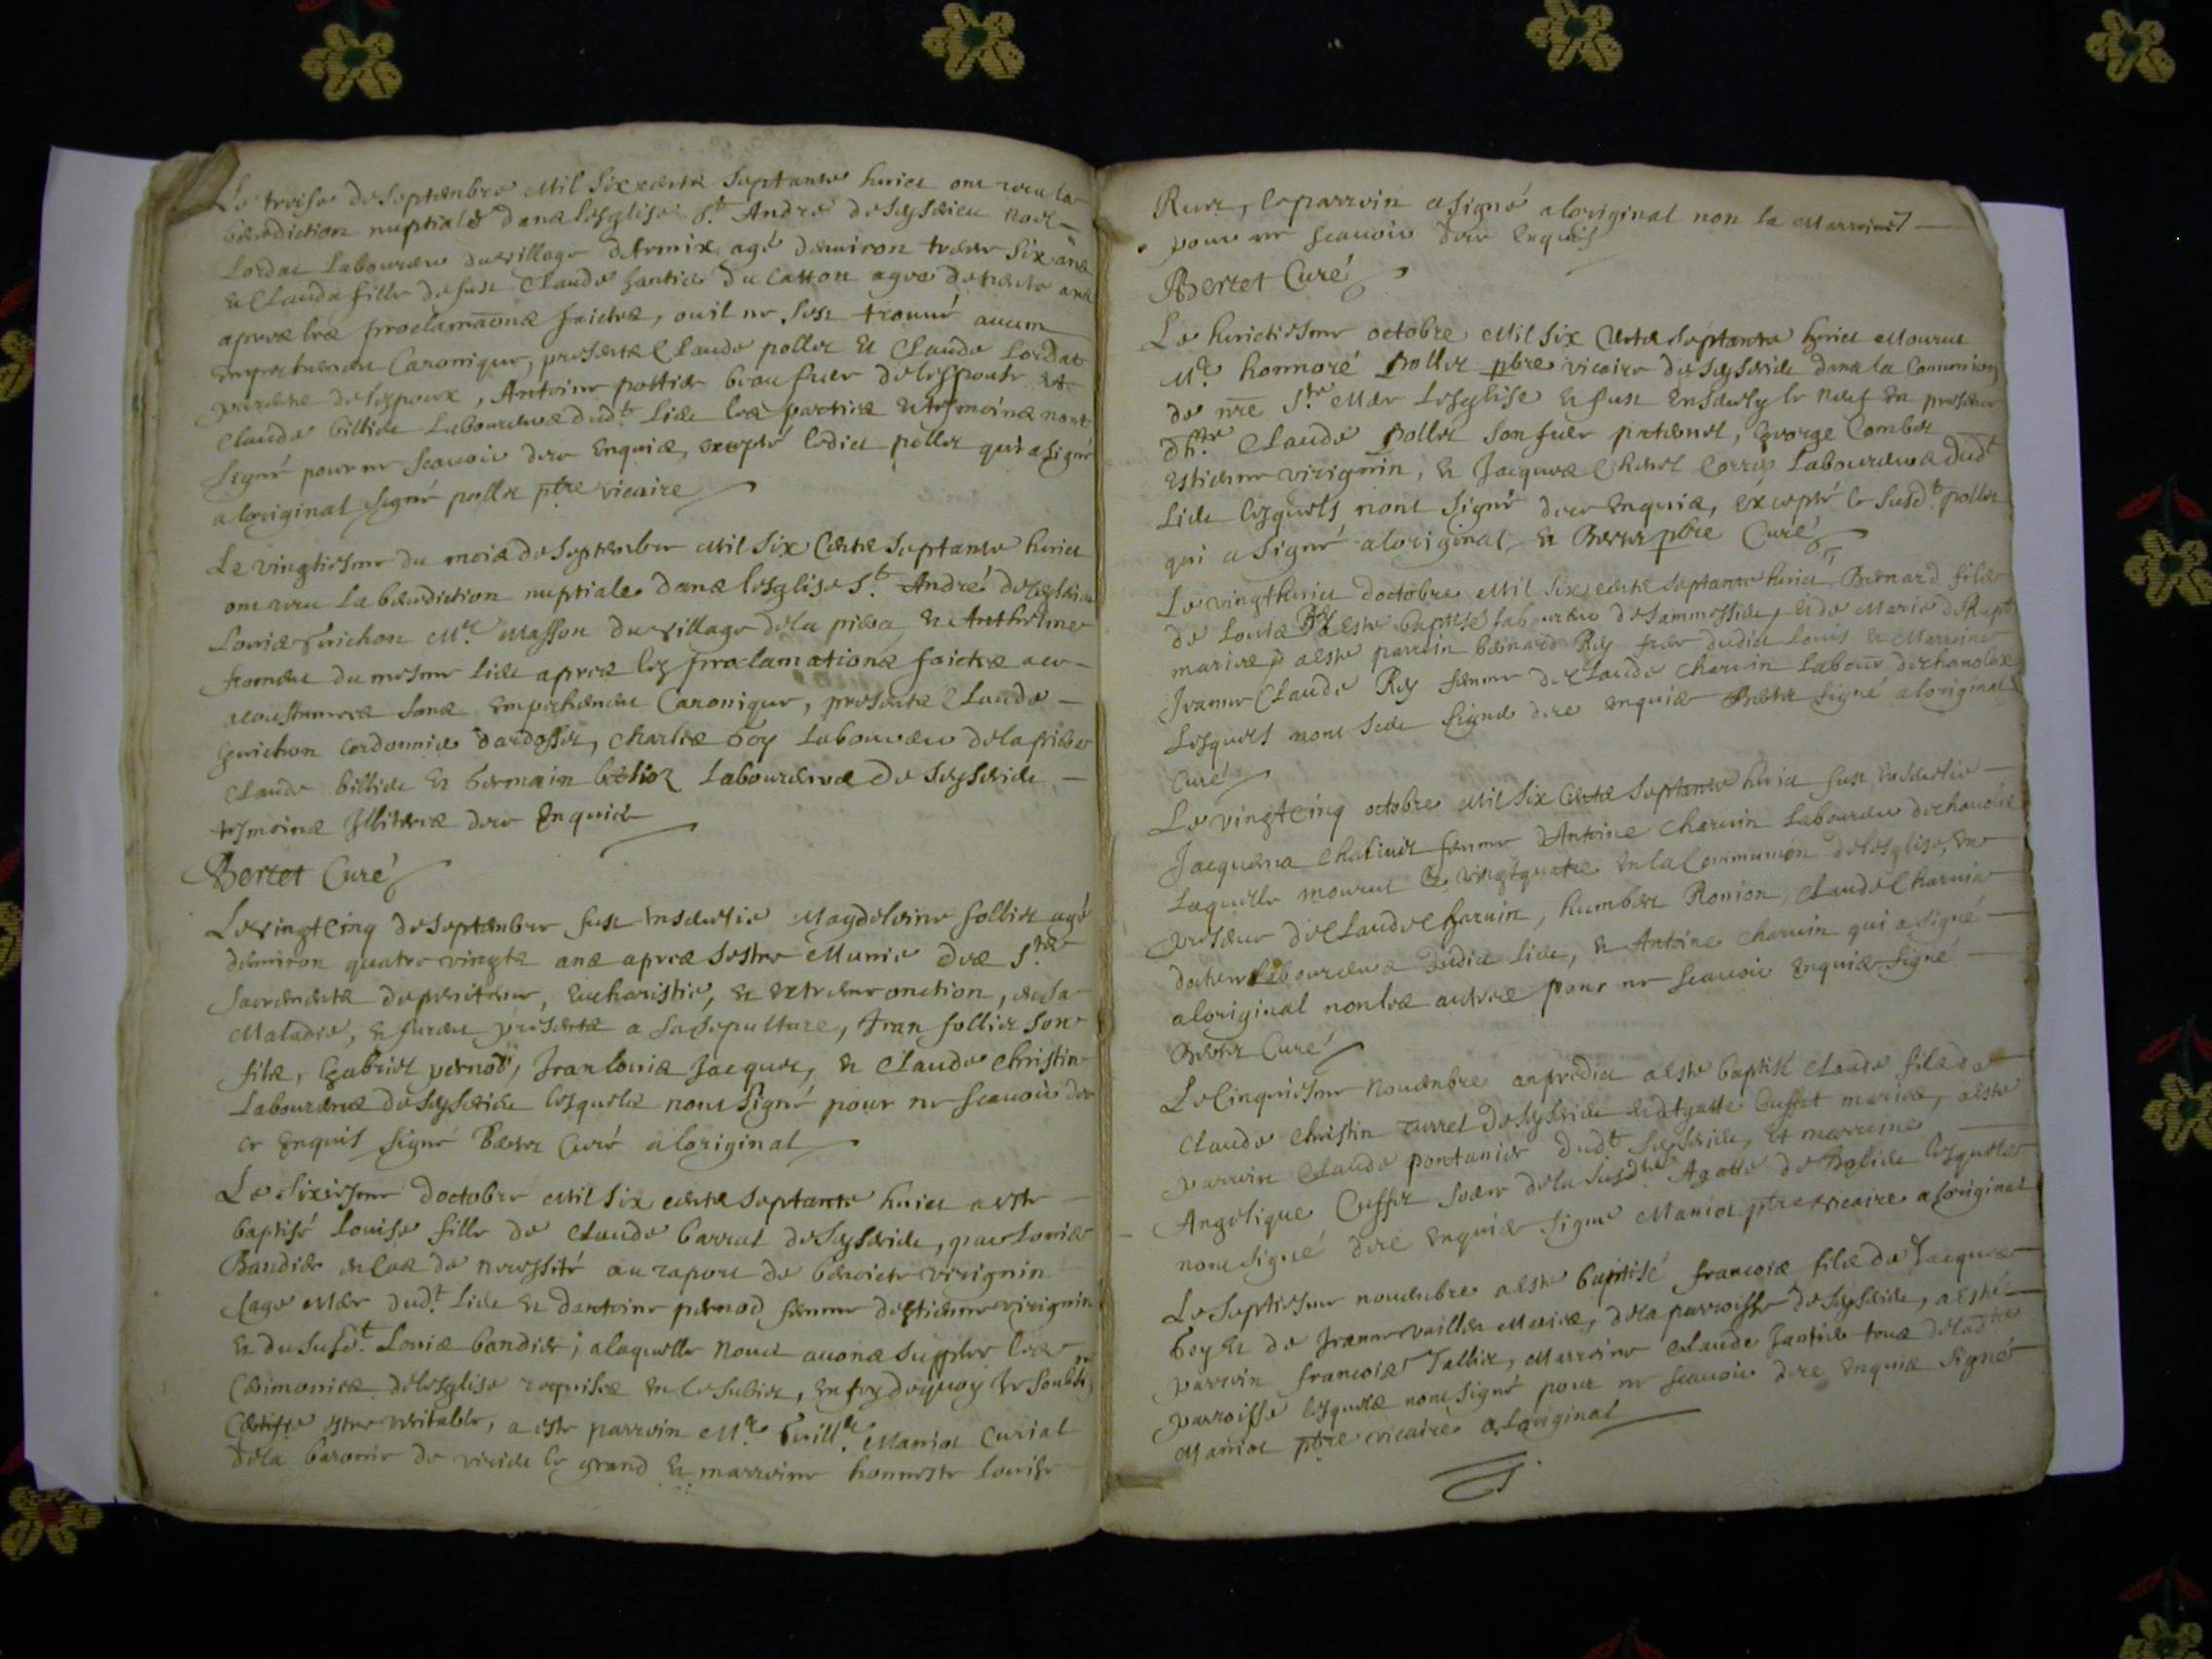 Le treise de septembre Mil six cents septante huict ont receu la
benediction nuptiale dans lesglise St. André de Seyssieu noel
Lordat Laboureur du village darmix agé denviron trente six ans
et Clauda fille de fust Claude Jantie du Catton agee de trente ans
apres les proclamaons faictes, ou il ne sest trouué aucun
empechement Canonique, presents Claude pollet et Claude Lordat
parents de lespoux, Antoine pottier beau frere de lespouse et
Claude billiet Laboureurs dudt. lieu les parties et tesmoins nont
signé pour ne scauoir de ce enquis, excepté ledict pollet qui a signé
a loriginal signé pollet pbre vicaire
Le vingtiesme du mois de septembre Mil six Cents septante huict
ont receu la benediction nuptiale dans lesglise St. André de
Louis Guichon Me. Masson du village de la et Anthelme
du mesme lieu apres les proclamations faictes acc-
acoustumees sans empechement Canonique, presents Claude
Guichon Cordonnier, Charles boy Laboureur de la
Claude billiet et Germain Laboureurs de Seyssieu
tesmoins Illiteres de ce Enquis
Bertet Curé
Le vingtcinq de septembre fust enseuelie Magdeleine sollier agé
denviron quatre vingts ans apres sestre Munie des Sts
sacrements de penitence, eucharistie, et extremonction, en sa
Maladie, et furent presents a sa sepulture, Jean sollier son
fils, Gabriel pernod, Jean louis Jacquet, et Claude Christin
Laboureurs de Seyssieu lesquels nont signé pour ne scauoir de
ce enquis signé Bertet Curé a loriginal
Le sixiesme doctobre Mil six cents septante huict a este
baptisé louise fille de Claude barrat de Seyssieu, et
Bandier en cas de necessité au raport de benoicte virignin
sage Mere dudt. lieu et dantoine pernod femme destienne virignin
et du susdt. Louis bandier; a laquelle Nous auons supplee les
Ceremonies de lesglise requises en ce subiet, en foy dequoy Je soubsne
Certifie estre veritable, a este parrein Me. Guille. Maniot Curial
de la baronie de virieu le grand et marreine honneste louise
Ruet, le parrein a signé a loriginal non la Marreine
pour ne scauoir de ce enquis
Bertet Curé
Le huictiesme octobre Mil six Cents septante huict Mourut
Me. honnoré pollet pbre vicaire de Seyssieu dans la Communion
de nre Ste. Mere Lesglise et fust enseuely le neuf en presence
dhr. Claude pollet son frere paternel, George Combet
Estienne virignin, et Jacques Chenel Corrif Laboureurs dudt
lieu lesquels nont signé de ce enquis, excepté le susdt. pollet
qui a signé a loriginal et Bertet pbre Curé
Le vingthuict doctobre Mil six cents septante huict, Bernard fils
de Louis Rey a este baptisé laboureur de sammessieu, et de Marie
mariés a este parrein bernard Rey frere dudict louis et Marreine
Jeanne Claude Rey femme de Claude Charuin Labour de chanoles
Lesquels nont sceu signe de ce enquis Bertet signé a loriginal
Curé
Le vingtcinq octobre Mil six Cents septante huict fust enseuelie
Jacquema Chaliuet femme dAntoine Charuin Laboureur de chauoles
Laquelle mourut le vingtquatre en la Communion de lesglise, en
presence de Claude Charuin, humbert Ronion, Claude Charuin
Laboureurs dudict lieu, et Antoine Charuin qui a signé
a loriginal non les autres pour ne scauoir enquis signé
Bertet Curé
Le Cinquiesme Nouembre an predict a este baptisé Claude fils de
Claude Christin turrel de Seyssieu et dAgatte Cusset mariés, a este
parrein Claude pontanier dudt Seyssieu, et marreine
Angelique Cusset soeur de la susdte Agatte de Rolieu lesquels
nont signé de ce enquis signe Maniot pbre vicaire a loriginal
Le septiesme nouembre a este baptisé francois fils de Jacques
boy et de Jeanne vuillet Mariés, de la parroisse de Seyssieu, a esté
parrein francois Tallier, Marreine Claude Jantie tous de ladte
parroisse lesquels nont signé pour ne scauoir de ce enquis signé
Maniot pbre vicaire a loriginal